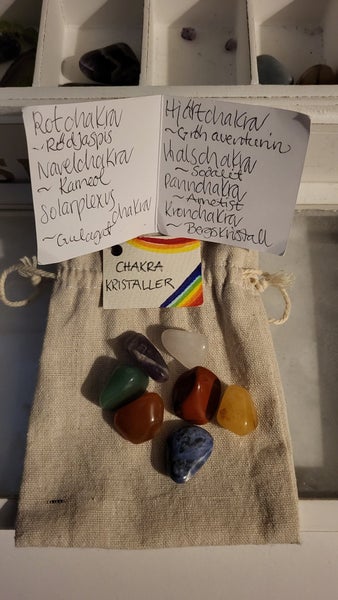 Rotchakra
~ Rödjaspis
Navelchakra
~ Karneol
Solarplexus
chakra
~ Gulagat
Hjärtchakra
~ Grön aventurin
Halschakra
~ Sodalit
Pannchakra
~ Ametist
Kronchakra
~ Bergskristall
CHAKRA
KRISTALLER